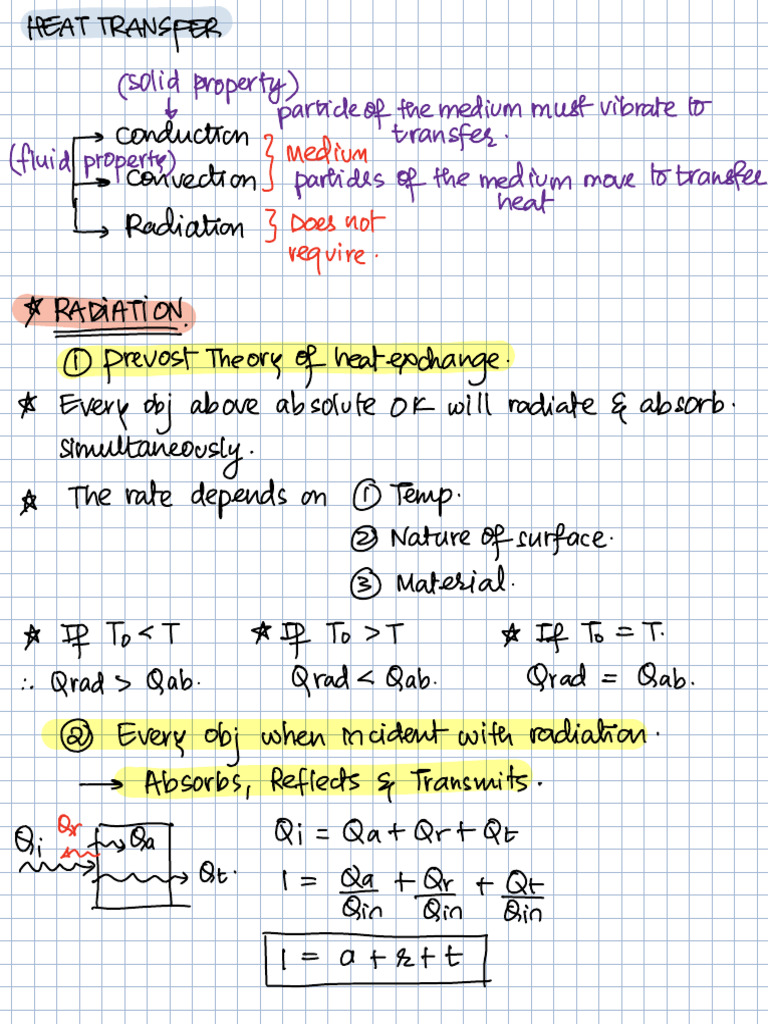 HEAT TRANSFER
(solid property)
particle of the medium must vibrate to
transfer.
conduction
(fluid property)
} Medium
convection
particles of the medium move to transfer
heat
Radiation
} Does not
require.
☆ RADIATION.
① prevost Theory of heat exchange.
☆ Every obj above absolute 0K will radiate & absorb.
simultaneously.
☆ The rate depends on ① Temp.
② Nature of surface.
③ Material.
☆ If T₀ < T ☆ If T₀ > T ☆ If T₀ = T.
∴ Qrad > Qab. Qrad < Qab. Qrad = Qab.
② Every obj when incident with radiation.
→ Absorbs, Reflects & Transmits.
Qi Qr Qa Qt.
Qi = Qa + Qr + Qt
1 = Qa/Qin + Qr/Qin + Qt/Qin
1 = a + r + t